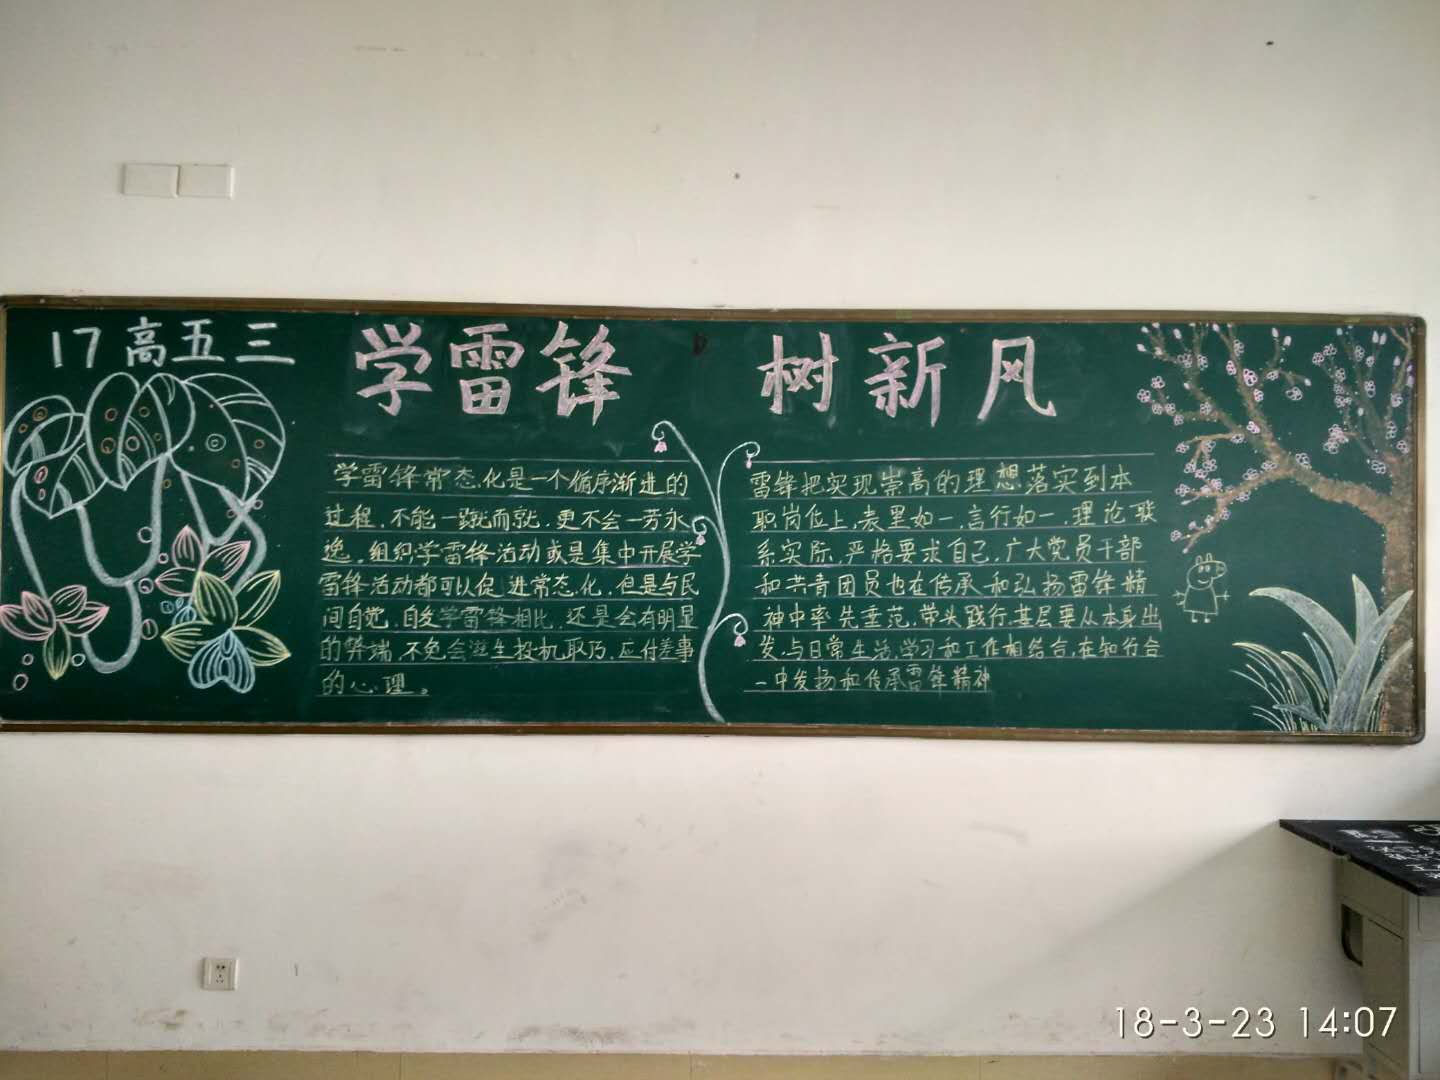 17高五三
学雷锋 树新风
学雷锋常态化是一个循序渐进的
过程,不能一蹴而就,更不会一劳永
逸,组织学雷锋活动或是集中开展学
雷锋活动都可以促进常态化,但是与民
间自觉,自发学雷锋相比,还是会有明显
的弊端,不免会滋生投机取巧,应付差事
的心理。
雷锋把实现崇高的理想落实到本
职岗位上,表里如一,言行如一,理论联
系实际,严格要求自己,广大党员干部
和共青团员也在传承和弘扬雷锋精
神中率先垂范,带头践行,基层要从本身出
发,与日常生活,学习和工作相结合,在知行合
一中发扬和传承雷锋精神
18-3-23 14:07